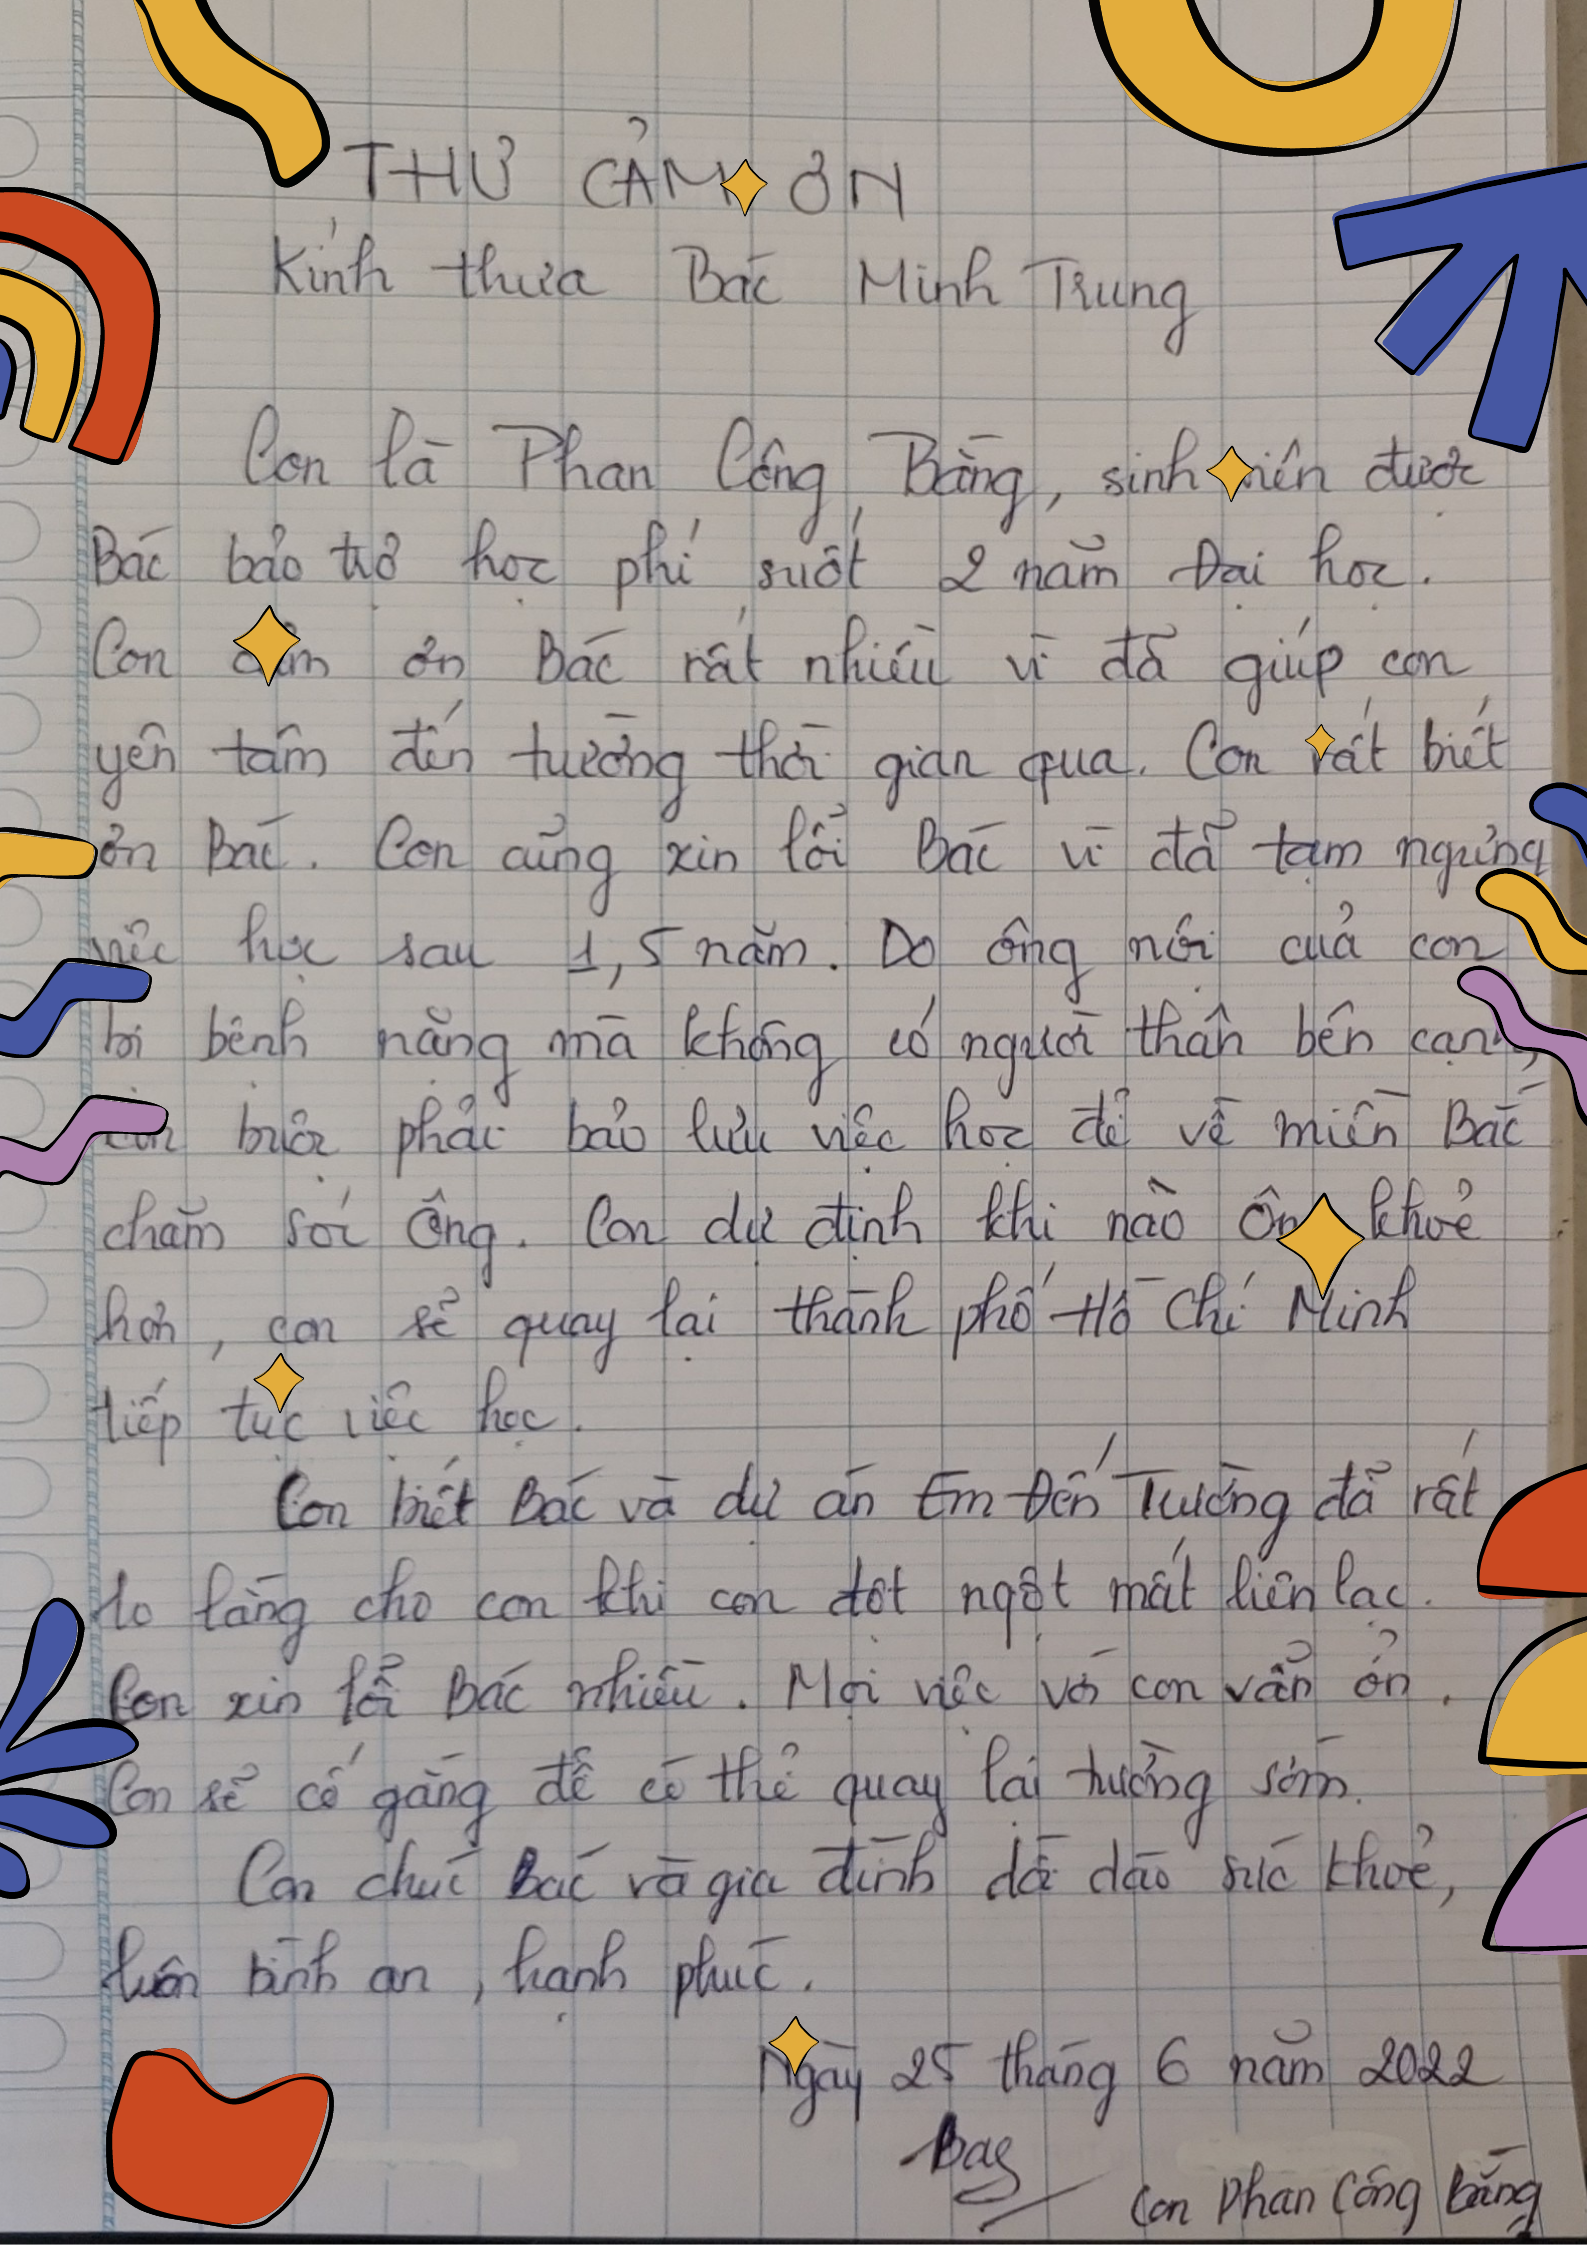 THƯ CẢM ƠN
Kính thưa Bác Minh Trung
Con là Phan Công Bằng, sinh viên được
Bác bảo trợ học phí suốt 2 năm Đại học.
Con cảm ơn Bác rất nhiều vì đã giúp con
yên tâm đến trường thời gian qua. Con rất biết
ơn Bác. Con cũng xin lỗi Bác vì đã tạm ngừng
việc học sau 1,5 năm. Do ông nội của con
bị bệnh nặng mà không có người thân bên cạnh,
con buộc phải bảo lưu việc học để về miền Bắc
chăm sóc Ông. Con dự định khi nào Ông khoẻ
hơn, con sẽ quay lại thành phố Hồ Chí Minh
tiếp tục việc học.
Con biết Bác và dự án Em Đến Trường đã rất
lo lắng cho con khi con đột ngột mất liên lạc.
Con xin lỗi Bác nhiều. Mọi việc với con vẫn ổn.
Con sẽ cố gắng để có thể quay lại trường sớm.
Con chúc Bác và gia đình dồi dào sức khoẻ,
luôn bình an, hạnh phúc.
Ngày 25 tháng 6 năm 2022
Con Phan Công Bằng